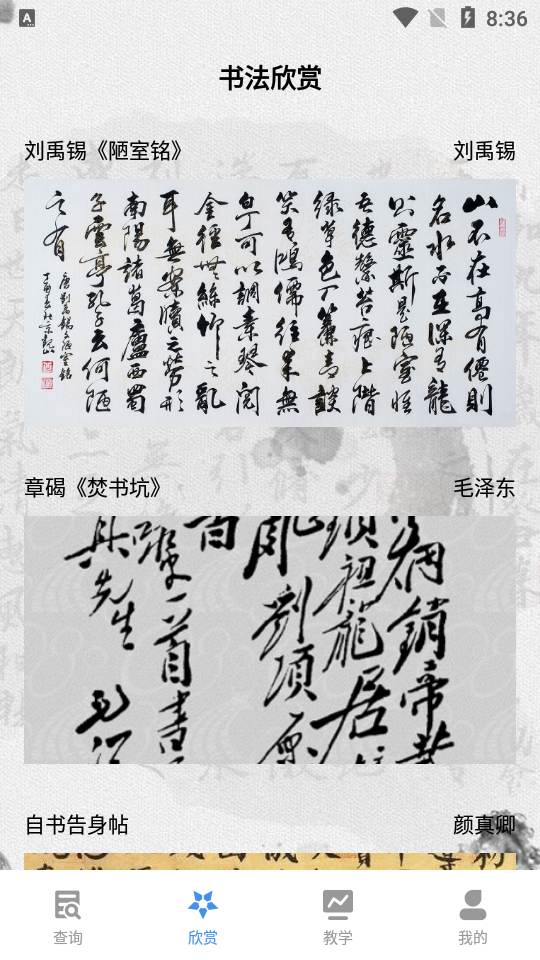 8:36
书法欣赏
刘禹锡《陋室铭》
刘禹锡
山不在高有僊則
名水不在深有龍
則靈斯是陋室惟
吾德馨苔痕上階
綠草色入簾青談
笑有鴻儒往來無
白丁可以調素琴閱
金經無絲竹之亂
耳無案牘之勞形
南陽諸葛廬西蜀
子雲亭孔子云何陋
之有
章碣《焚书坑》
毛泽东
烟銷帝業
鎖祖龍居
亂劉項原
一首書
先生
自书告身帖
颜真卿
查询
欣赏
教学
我的